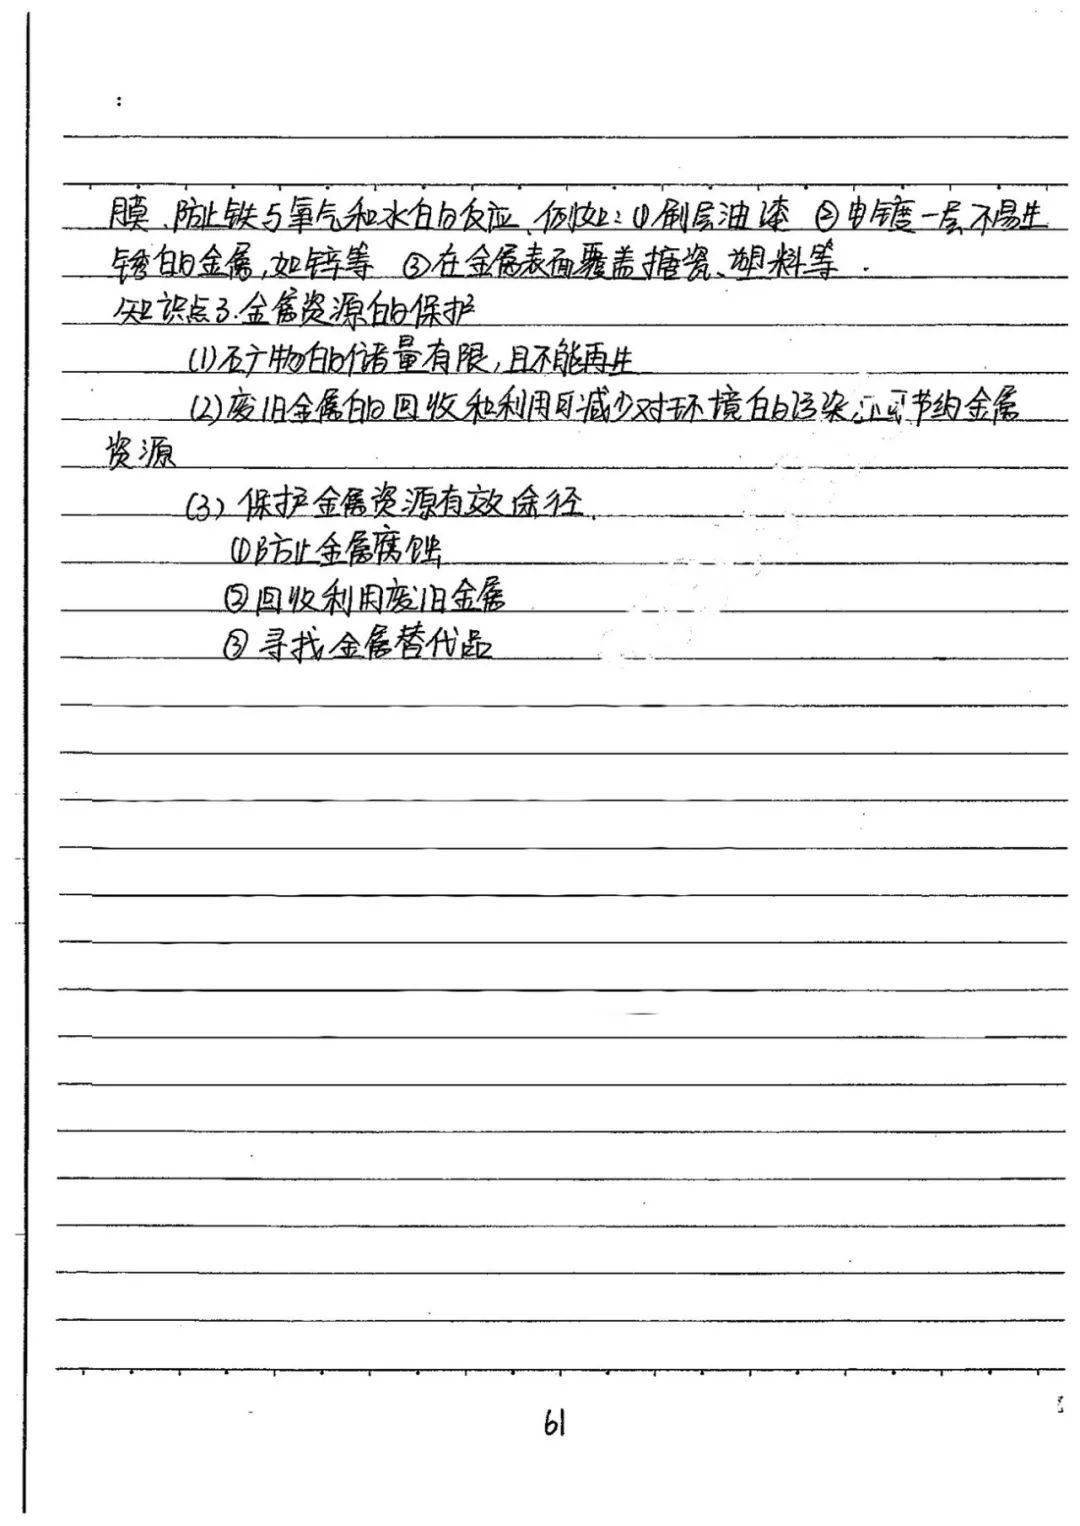 膜、防止铁与氧气和水的反应、例如:①刷层油漆 ②电镀一层不易生
锈的金属,如锌等 ③在金属表面覆盖搪瓷、塑料等.
知识点3.金属资源的保护
(1)矿物的储量有限,且不能再生
(2)废旧金属的回收和利用可减少对环境的污染,还可节约金属
资源
(3)保护金属资源有效途径.
①防止金属腐蚀
②回收利用废旧金属
③寻找金属替代品
61